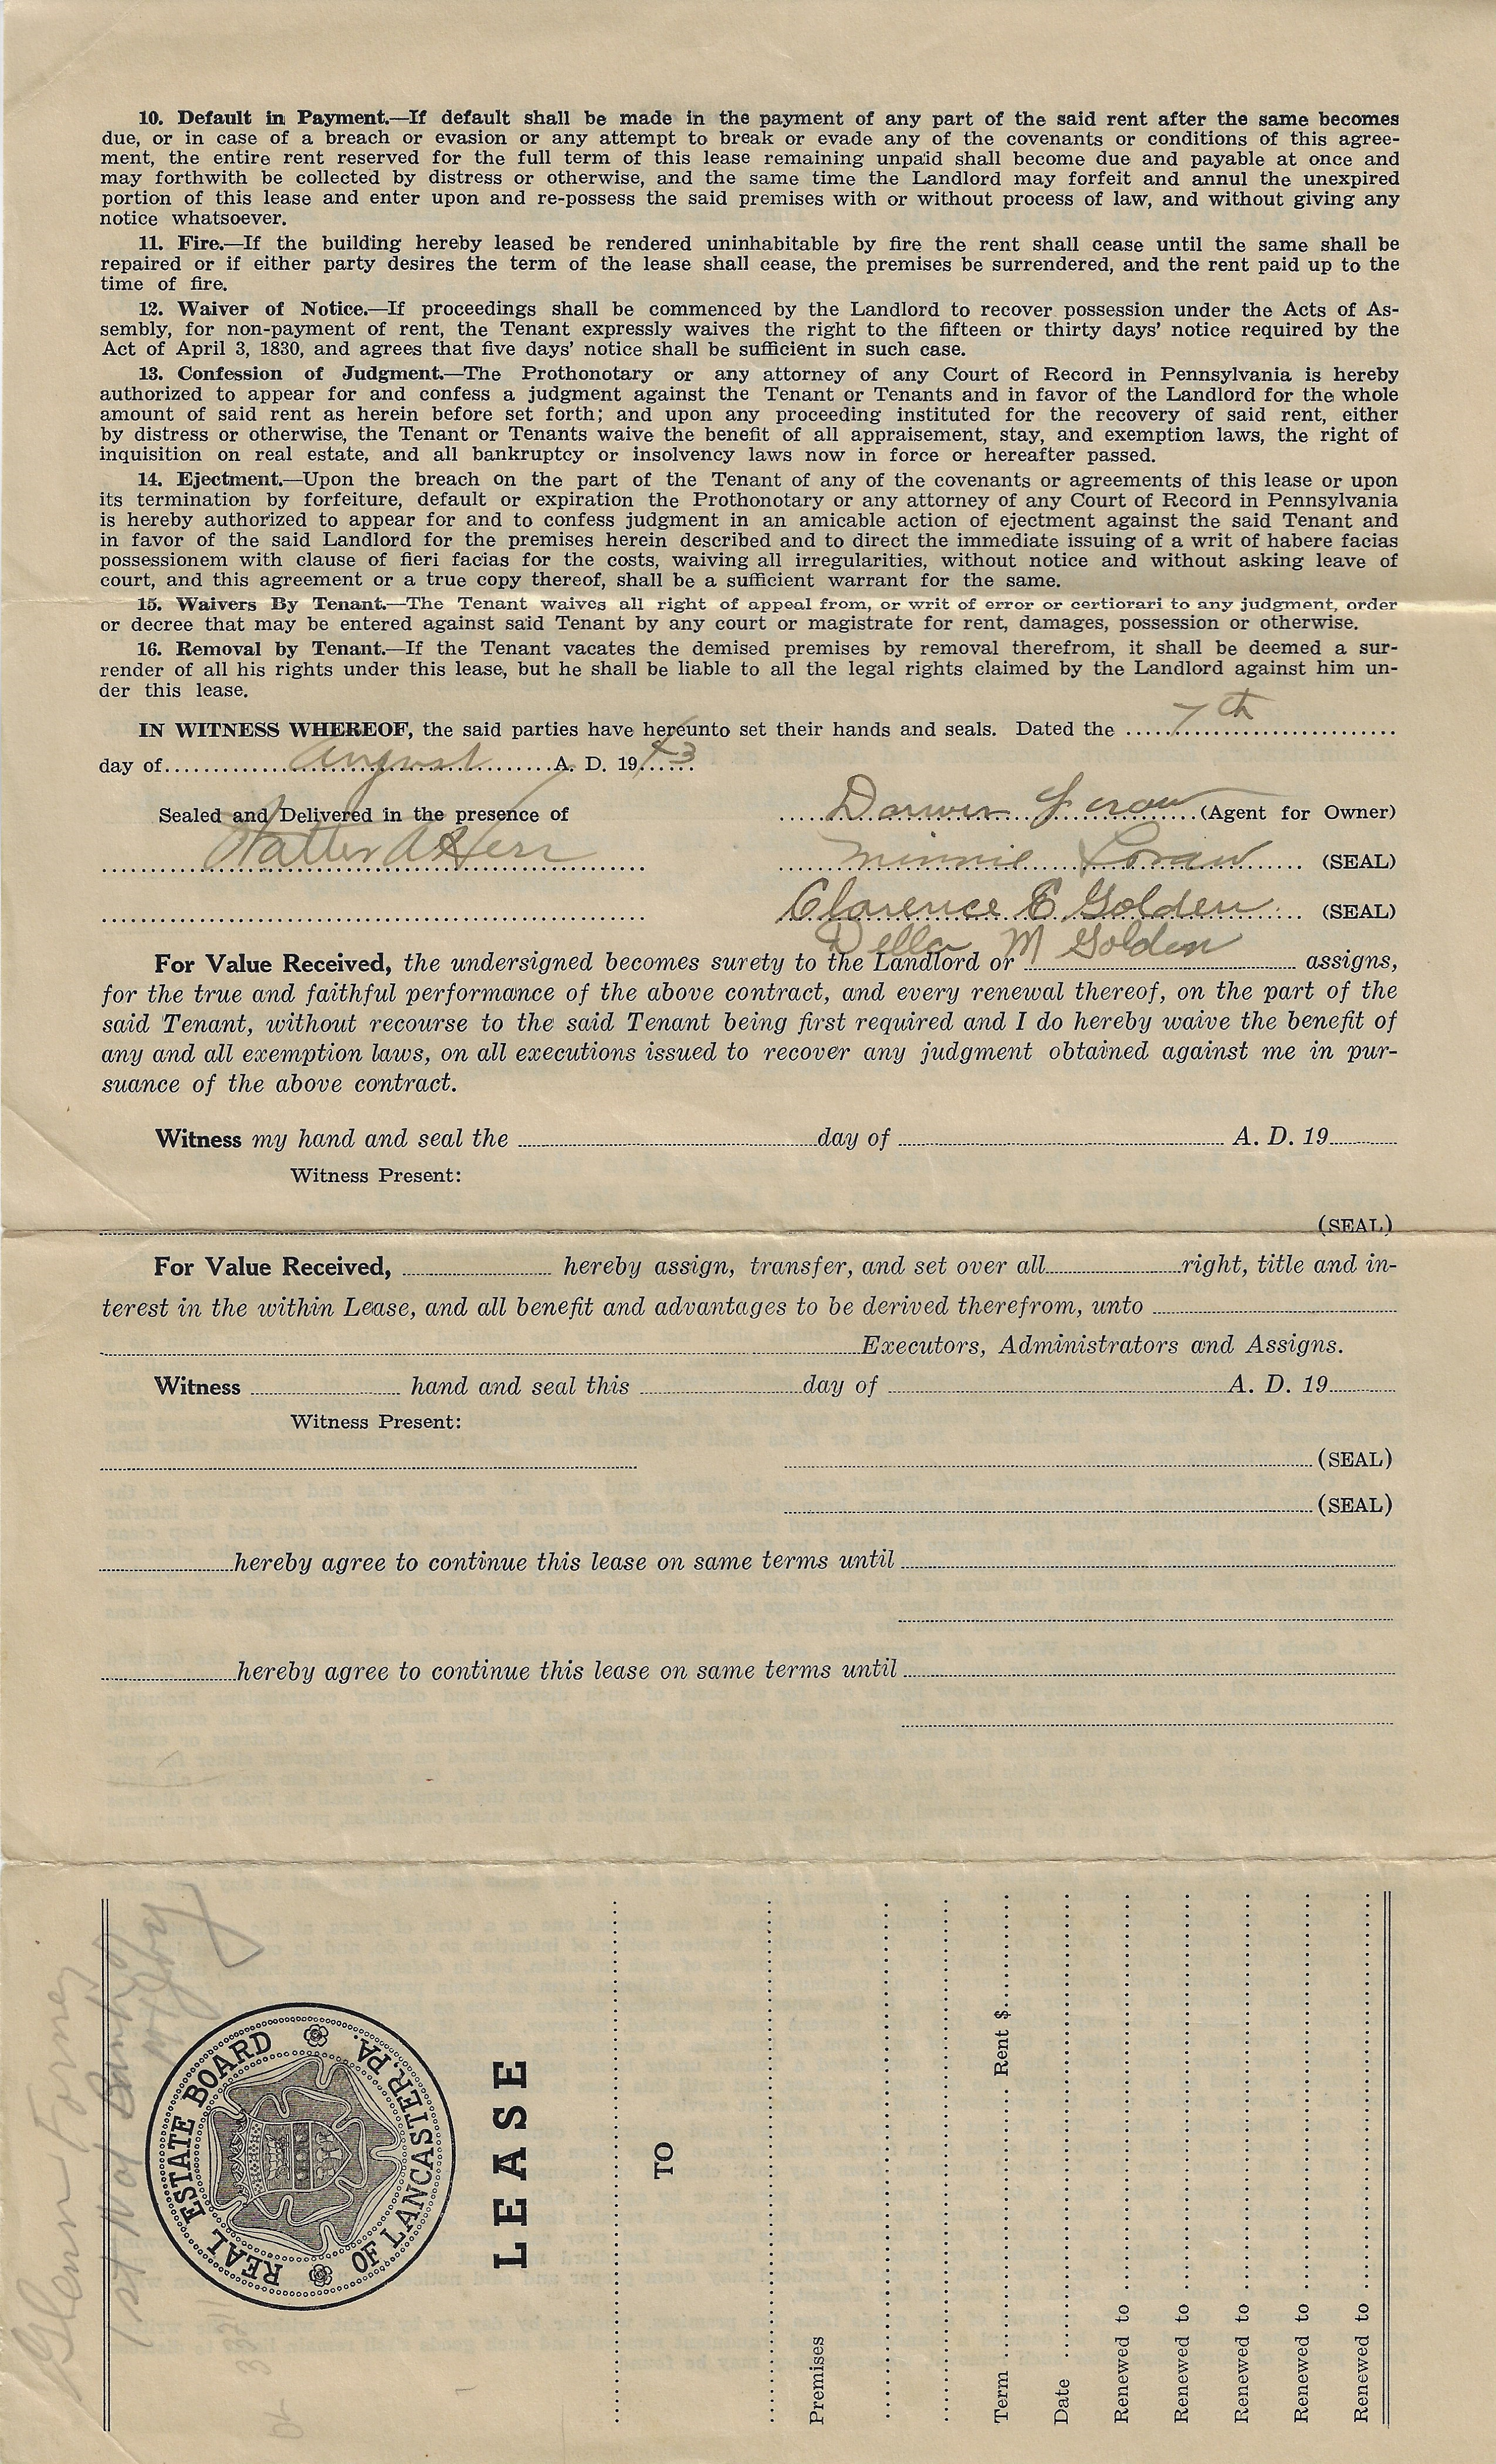 10. Default in Payment.—If default shall be made in the payment of any part of the said rent after the same becomes
due, or in case of a breach or evasion or any attempt to break or evade any of the covenants or conditions of this agree-
ment, the entire rent reserved for the full term of this lease remaining unpaid shall become due and payable at once and
may forthwith be collected by distress or otherwise, and the same time the Landlord may forfeit and annul the unexpired
portion of this lease and enter upon and re-possess the said premises with or without process of law, and without giving any
notice whatsoever.
11. Fire.—If the building hereby leased be rendered uninhabitable by fire the rent shall cease until the same shall be
repaired or if either party desires the term of the lease shall cease, the premises be surrendered, and the rent paid up to the
time of fire.
12. Waiver of Notice.—If proceedings shall be commenced by the Landlord to recover possession under the Acts of As-
sembly, for non-payment of rent, the Tenant expressly waives the right to the fifteen or thirty days' notice required by the
Act of April 3, 1830, and agrees that five days' notice shall be sufficient in such case.
13. Confession of Judgment.—The Prothonotary or any attorney of any Court of Record in Pennsylvania is hereby
authorized to appear for and confess a judgment against the Tenant or Tenants and in favor of the Landlord for the whole
amount of said rent as herein before set forth; and upon any proceeding instituted for the recovery of said rent, either
by distress or otherwise, the Tenant or Tenants waive the benefit of all appraisement, stay, and exemption laws, the right of
inquisition on real estate, and all bankruptcy or insolvency laws now in force or hereafter passed.
14. Ejectment.—Upon the breach on the part of the Tenant of any of the covenants or agreements of this lease or upon
its termination by forfeiture, default or expiration the Prothonotary or any attorney of any Court of Record in Pennsylvania
is hereby authorized to appear for and to confess judgment in an amicable action of ejectment against the said Tenant and
in favor of the said Landlord for the premises herein described and to direct the immediate issuing of a writ of habere facias
possessionem with clause of fieri facias for the costs, waiving all irregularities, without notice and without asking leave of
court, and this agreement or a true copy thereof, shall be a sufficient warrant for the same.
15. Waivers By Tenant.—The Tenant waives all right of appeal from, or writ of error or certiorari to any judgment, order
or decree that may be entered against said Tenant by any court or magistrate for rent, damages, possession or otherwise.
16. Removal by Tenant.—If the Tenant vacates the demised premises by removal therefrom, it shall be deemed a sur-
render of all his rights under this lease, but he shall be liable to all the legal rights claimed by the Landlord against him un-
der this lease.
IN WITNESS WHEREOF, the said parties have hereunto set their hands and seals. Dated the 7th
day of August A. D. 1943
Sealed and Delivered in the presence of Darwin (Agent for Owner)
Walter A Herr Minnie (SEAL)
Clarence E Golden (SEAL)
Della M Golden
For Value Received, the undersigned becomes surety to the Landlord or assigns,
for the true and faithful performance of the above contract, and every renewal thereof, on the part of the
said Tenant, without recourse to the said Tenant being first required and I do hereby waive the benefit of
any and all exemption laws, on all executions issued to recover any judgment obtained against me in pur-
suance of the above contract.
Witness my hand and seal the day of A. D. 19
Witness Present:
(SEAL)
For Value Received, hereby assign, transfer, and set over all right, title and in-
terest in the within Lease, and all benefit and advantages to be derived therefrom, unto
Executors, Administrators and Assigns.
Witness hand and seal this day of A. D. 19
Witness Present:
(SEAL)
(SEAL)
hereby agree to continue this lease on same terms until
hereby agree to continue this lease on same terms until
Glenn Forney
1st Nat Bank of
REAL ESTATE BOARD
OF LANCASTER, PA.
LEASE
TO
Premises
Term Rent $
Date
Renewed to
Renewed to
Renewed to
Renewed to
Renewed to